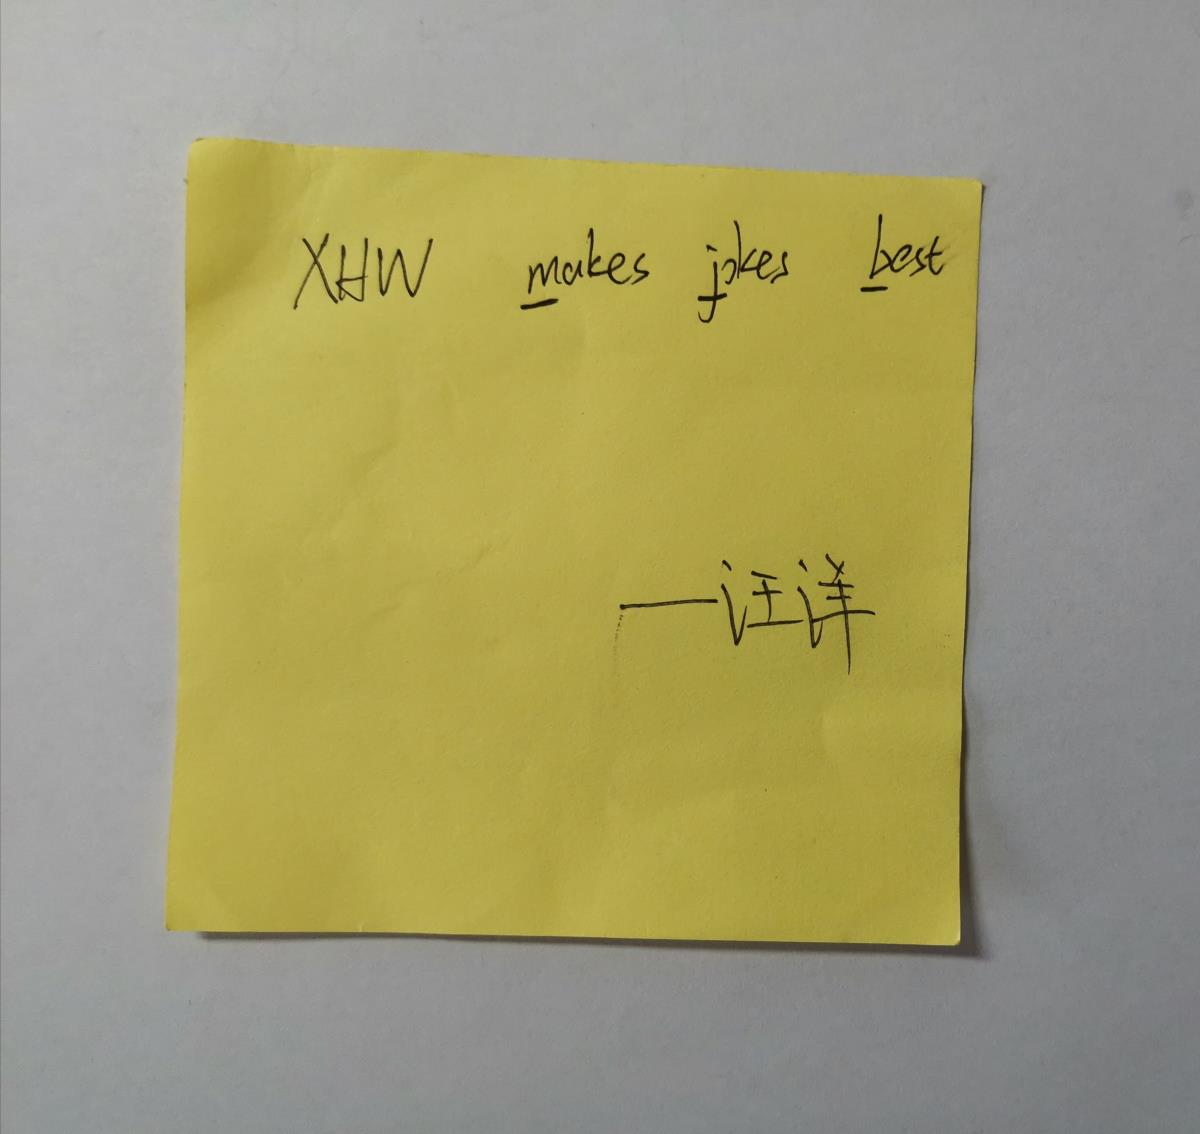 XHW makes jokes best
——汪洋